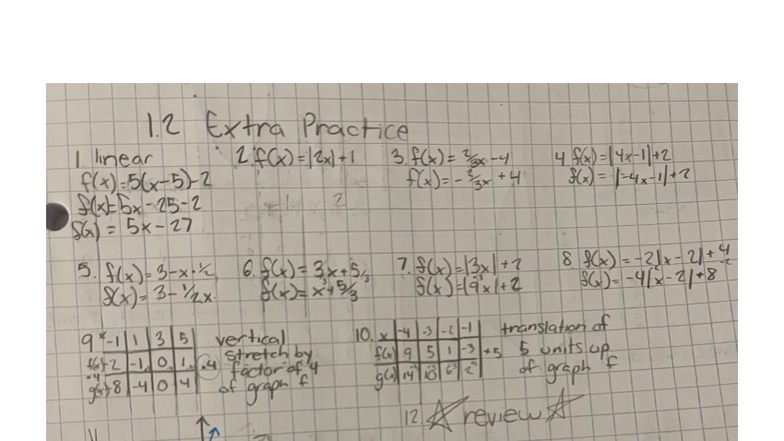 1.2 Extra Practice
1. linear
f(x)=5(x-5)-2
f(x)=5x-25-2
f(x) = 5x-27
2. f(x)=|2x|+1
3. f(x)=2/3x-4
f(x)=-2/3x+4
4 f(x)=|4x-1|+2
f(x)=|-4x-1|+2
5. f(x)=3-x·1/2
f(x)=3-1/2x
6. f(x)=3x+5/3
f(x)=x+5/3
7. f(x)=|3x|+2
f(x)=|9x|+2
8 f(x)=-2|x-2|+4
f(x)=-4|x-2|+8
9 x -1 1 3 5
f(x) -2 -1 0 1 ·4
g(x) -8 -4 0 4
vertical
stretch by
factor of 4
of graph f
10. x -4 -3 -2 -1
f(x) 9 5 1 -3 +5
g(x) 14 10 6 2
translation of
5 units up
of graph f
12 ☆ review ☆
11